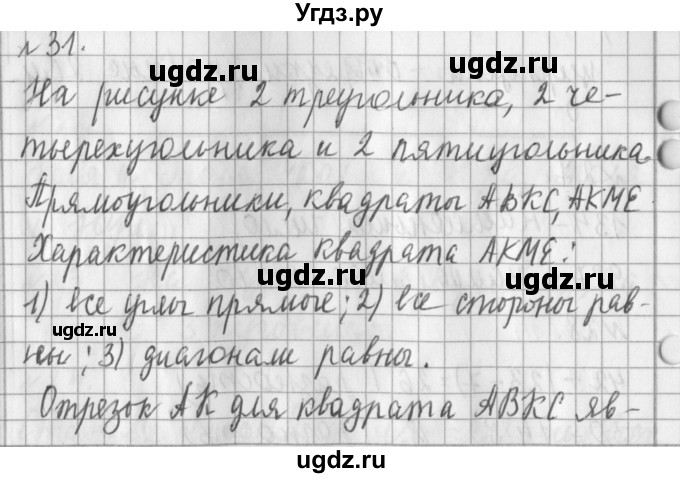 Угдз.ру
№31.
На рисунке 2 треугольника, 2 че-
тырехугольника и 2 пятиугольника.
Прямоугольники, квадраты АВКС, АКМЕ.
Характеристика квадрата АКМЕ:
1) все углы прямые; 2) все стороны рав-
ны; 3) диагонали равны.
Отрезок АК для квадрата АВКС яв-
ugdz.ru
ugdz.ru
ugdz.ru
ugdz.ru
ugdz.ru
ugdz.ru
ugdz.ru
ugdz.ru